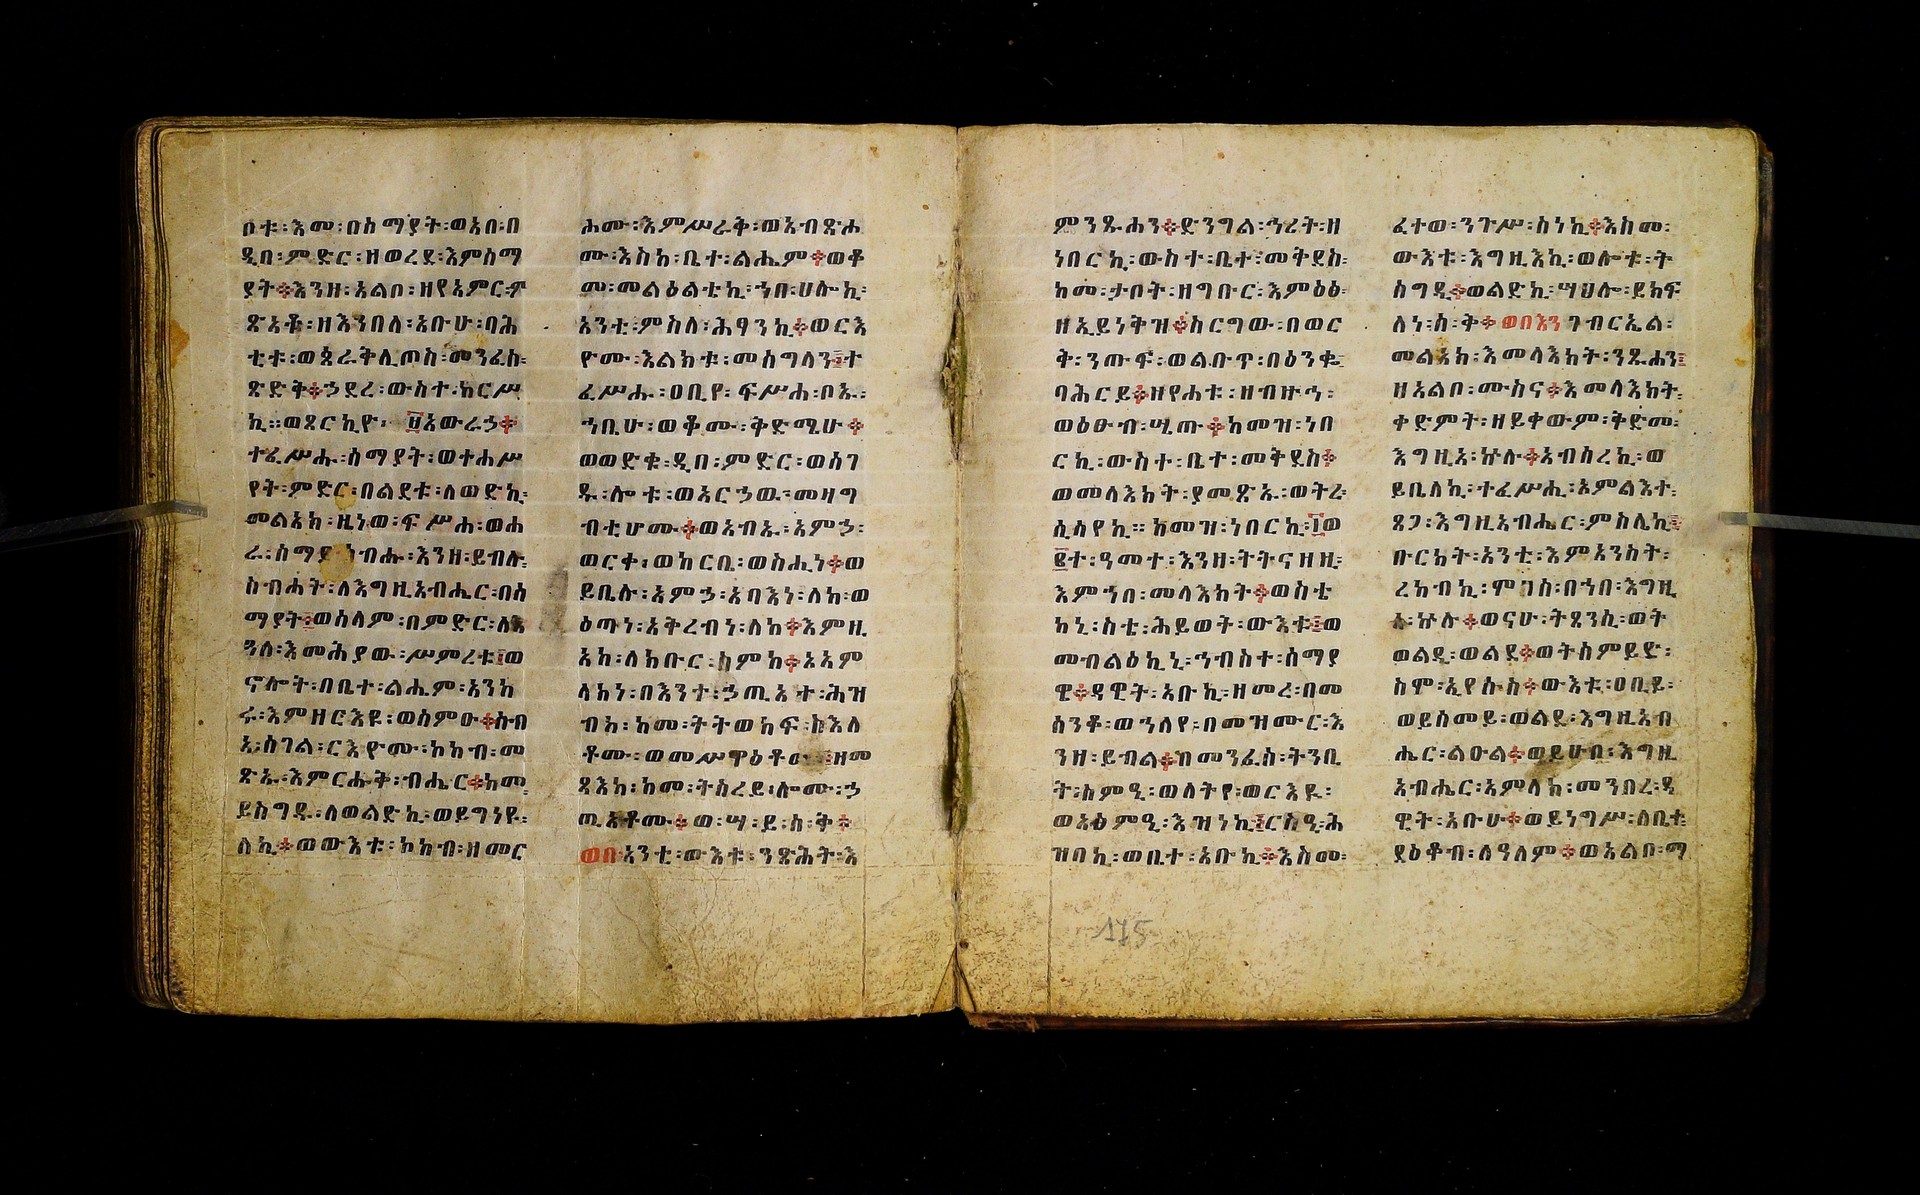 ዐቱ፡እመ፡በሰማያት፡ወአበ፡በ
ዲበ፡ምድር፡ዘወረደ፡እምሰማ
ያት፨እንዘ፡አልቦ፡ዘየአምር፡ም
ጽአቶ፡ዘእንበለ፡አቡሁ፡ባሕ
ቲቱ፡ወጰራቅሊጦስ፡መንፈስ፡
ጽድቅ፨ኃደረ፡ውስተ፡ከርሥ
ኪ።ወጾርኪዮ፡ ፱አውራኃ፨
ተፈሥሑ፡ሰማያት፡ወተሐሥ
የት፡ምድር፡በልደቱ፡ለወድኪ፡
መልአክ፡ዜነወ፡ፍሥሐ፡ወሐ
ራ፡ሰማይ ሰብሑ፡እንዘ፡ይብሉ፡
ስብሐት፡ለእግዚአብሔር፡በሰ
ማያት፤ወሰላም፡በምድር፡ለእ
ጓለ፡እመሕያው፡ሥምረቱ፤ወ
ኖሎት፡በቤተ፡ልሔም፡አንከ
ሩ፡እምዘርእዩ፡ወሰምዑ፨ሰብ
አ፡ሰገል፡ርእዮሙ፡ኮከብ፡መ
ጽኡ፡እምርሑቅ፡ብሔር፨ከመ
ይስግዱ፡ለወልድኪ፡ወይግነዩ፡
ለኪ፨ወውእቱ፡ኮከብ፡ዘመር
ሖሙ፡እምሥራቅ፡ወአብጽሖ
ሙ፡እስከ፡ቤተ፡ልሔም፨ወቆ
መ፡መልዕልቴኪ፡ኀበ፡ሀሎኪ፡
አንቲ፡ምስለ፡ሕፃንኪ፨ወርእ
ዮሙ፡እልክቱ፡መሰግላን፤ተ
ፈሥሑ፡ዐቢየ፡ፍሥሐ፡ቦኡ፡
ኀቤሁ፡ወቆሙ፡ቅድሜሁ፨
ወወድቁ፡ዲበ፡ምድር፡ወሰገ
ዱ፡ሎቱ፡ወአርኃዉ፡መዛግ
ብቲሆሙ፨ወአብኡ፡አምኃ፡
ወርቀ፡ወከርቤ፡ወስሒነ፨ወ
ይቤሉ፡አምኃ፡አባእነ፡ለከ፡ወ
ዕጣነ፡አቅረብነ፡ለከ፨እምዚ
አከ፡ለክቡር፡ስምከ፨አአም
ላክነ፡በእንተ፡ኃጢአተ፡ሕዝ
ብከ፡ከመ፡ትትወከፍ፡ከእለ
ቶሙ፡ወመሥዋዕቶሙ፡ዘመ
ጻእከ፡ከመ፡ትስረይ፡ሎሙ፡ኃ
ጢአቶሙ፨ወ፡ሣ፡ይ፡ስ፡ቅ፨
ወበ፡አንቲ፡ውእቱ፡ንጽሕት፡እ
ምንጹሐን፨ድንግል፡ኅሪት፡ዘ
ነበርኪ፡ውስተ፡ቤተ፡መቅደስ፡
ከመ፡ታቦት፡ዘግቡር፡እምዕፅ፡
ዘኢይነቅዝ፨ስርግው፡በወር
ቅ፡ንጡፍ፡ወልቡጥ፡በዕንቈ
ባሕርይ፨ዘየሐቱ፡ዘብዙኅ፡
ወዕፁብ፡ሤጡ፨ከመዝ፡ነበ
ርኪ፡ውስተ፡ቤተ፡መቅደስ፨
ወመላእክት፡ያመጽኡ፡ወትረ፡
ሲሳየኪ። ከመዝ፡ነበርኪ፡፲ወ
፪ተ፡ዓመተ፡እንዘ፡ትትናዘዚ፡
እምኀበ፡መላእክት፨ወስቴ
ከኒ፡ስቴ፡ሕይወት፡ውእቱ፤ወ
መብልዕኪኒ፡ኅብስተ፡ሰማያ
ዊ፨ዳዊት፡አቡኪ፡ዘመረ፡በመ
ሰንቆ፡ወኀለየ፡በመዝሙር፡እ
ንዘ፡ይብል፨በመንፈስ፡ትንቢ
ት፡ስምዒ፡ወለትየ፡ወርእዪ፡
ወአፅምዒ፡እዝነኪ፤ርስዒ፡ሕ
ዝባኪ፡ወቤተ፡አቡኪ፨እስመ፡
ፈተወ፡ንጉሥ፡ስነኪ፨እስመ፡
ውእቱ፡እግዚእኪ፡ወሎቱ፡ት
ስግዲ፨ወልድኪ፡ሣህሉ፡ይክፍ
ለነ፡ስ፡ቅ፨ወበእን ገብርኤል፡
መልአክ፡እመላእክት፡ንጹሐን፤
ዘአልቦ፡ሙስና፨እመላእክት፡
ቀድምት፡ዘይቀውም፡ቅድመ፡
እግዚአ፡ኵሉ፨አብሰረኪ፡ወ
ይቤለኪ፡ተፈሥሒ፡አምልእተ፡
ጸጋ፡እግዚአብሔር፡ምስሌኪ፤
ቡርክት፡አንቲ፡እምአንስት፡
ረከብኪ፡ሞገስ፡በኀበ፡እግዚ
አ፡ኵሉ፨ወናሁ፡ትጸንሲ፡ወት
ወልዲ፡ወልደ፨ወትሰምይድ፡
ስሞ፡ኢየሱስ፨ውእቱ፡ዐቢይ፡
ወይሰመይ፡ወልደ፡እግዚአብ
ሔር፡ልዑል፨ወይሁቦ፡እግዚ
አብሔር፡አምላክ፡መንበረ፡ዳ
ዊት፡አቡሁ፨ወይነግሥ፡ለቤተ፡
ያዕቆብ፡ለዓለም፨ወአልቦ፡ማ
175